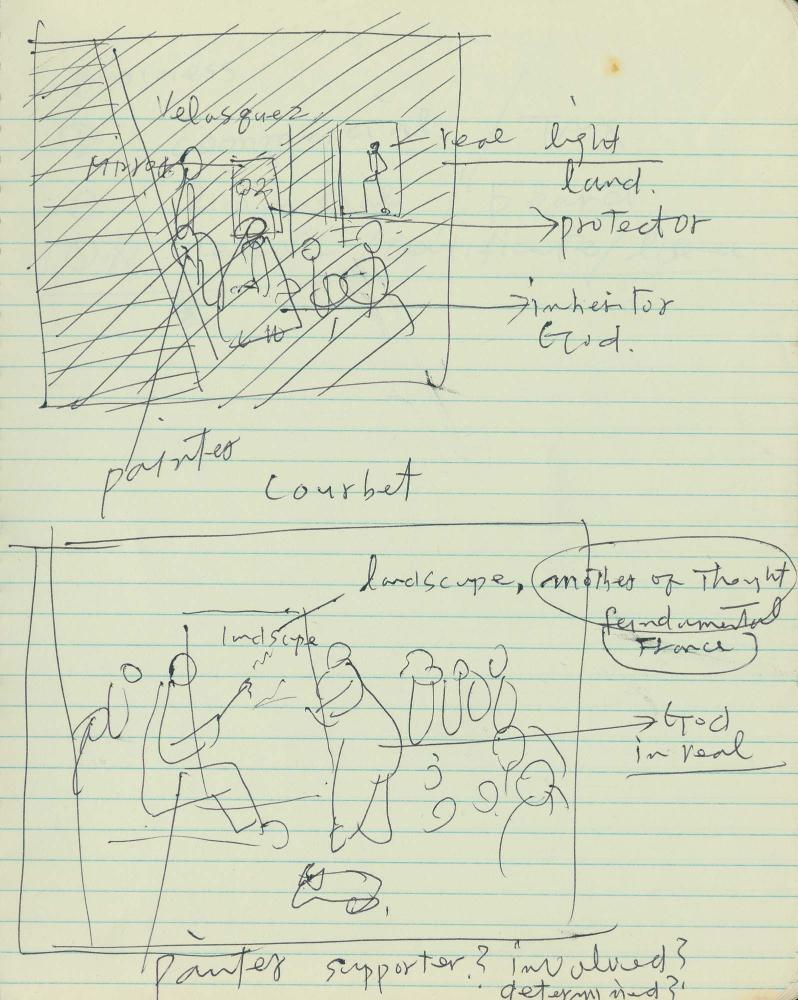 Velasquez
Mirror
real light
land.
protector
inheritor
God.
painter
Courbet
landscape, mother of Thought
fundamental
France
landscape
God
in real
painter supporter? involved?
determined?